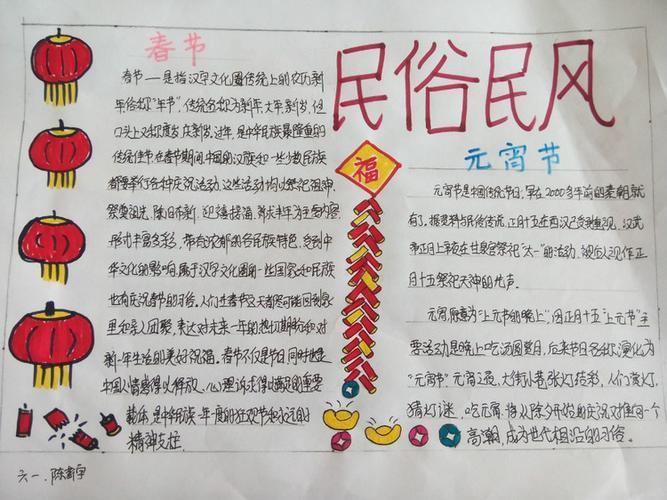 春节
春节——是指汉字文化圈传统上的农历新
年俗称"年节",传统名称为新年、大年、新岁,但
口头上又称度岁、庆新岁、过年,是中华民族最隆重的
传统佳节在春节期间中国的汉族和一些少数民族
都要举行各种庆祝活动。这些活动均以祭祀祖神、
祭奠祖先、除旧布新、迎禧接福、祈求丰年为主要内容
形式丰富多彩,带有浓郁的各民族特色。受到中
华文化的影响,属于汉字文化圈的一些国家和民族
也有庆祝春节的习俗。人们在春节这天都尽可能回到家
里和亲人团聚,表达对未来一年的热切期盼和对
新一年生活的美好祝福。春节不仅是节日同时也是
中国人情感得以释放、心理诉求得以满足的重要
载体,是中华民族一年一度的狂欢节和永远的
精神支柱。
民俗民风
福
元宵节
元宵节是中国传统节日,早在2000多年前的秦朝就
有了。据资料与民俗传说,正月十五在西汉已受到重视,汉武
帝正月上辛夜在甘泉宫祭祀"太一"的活动,被后人视作正
月十五祭祀天神的先声。
元宵原意为"上元节的晚上",因正月十五"上元节"主
要活动是晚上吃汤圆赏月,后来节日名称演化为
"元宵节"元宵之夜,大街小巷张灯结彩,人们赏灯,
猜灯谜,吃元宵,将从除夕开始的庆祝又推向一个
高潮,成为世代相沿的习俗。
六一、陈